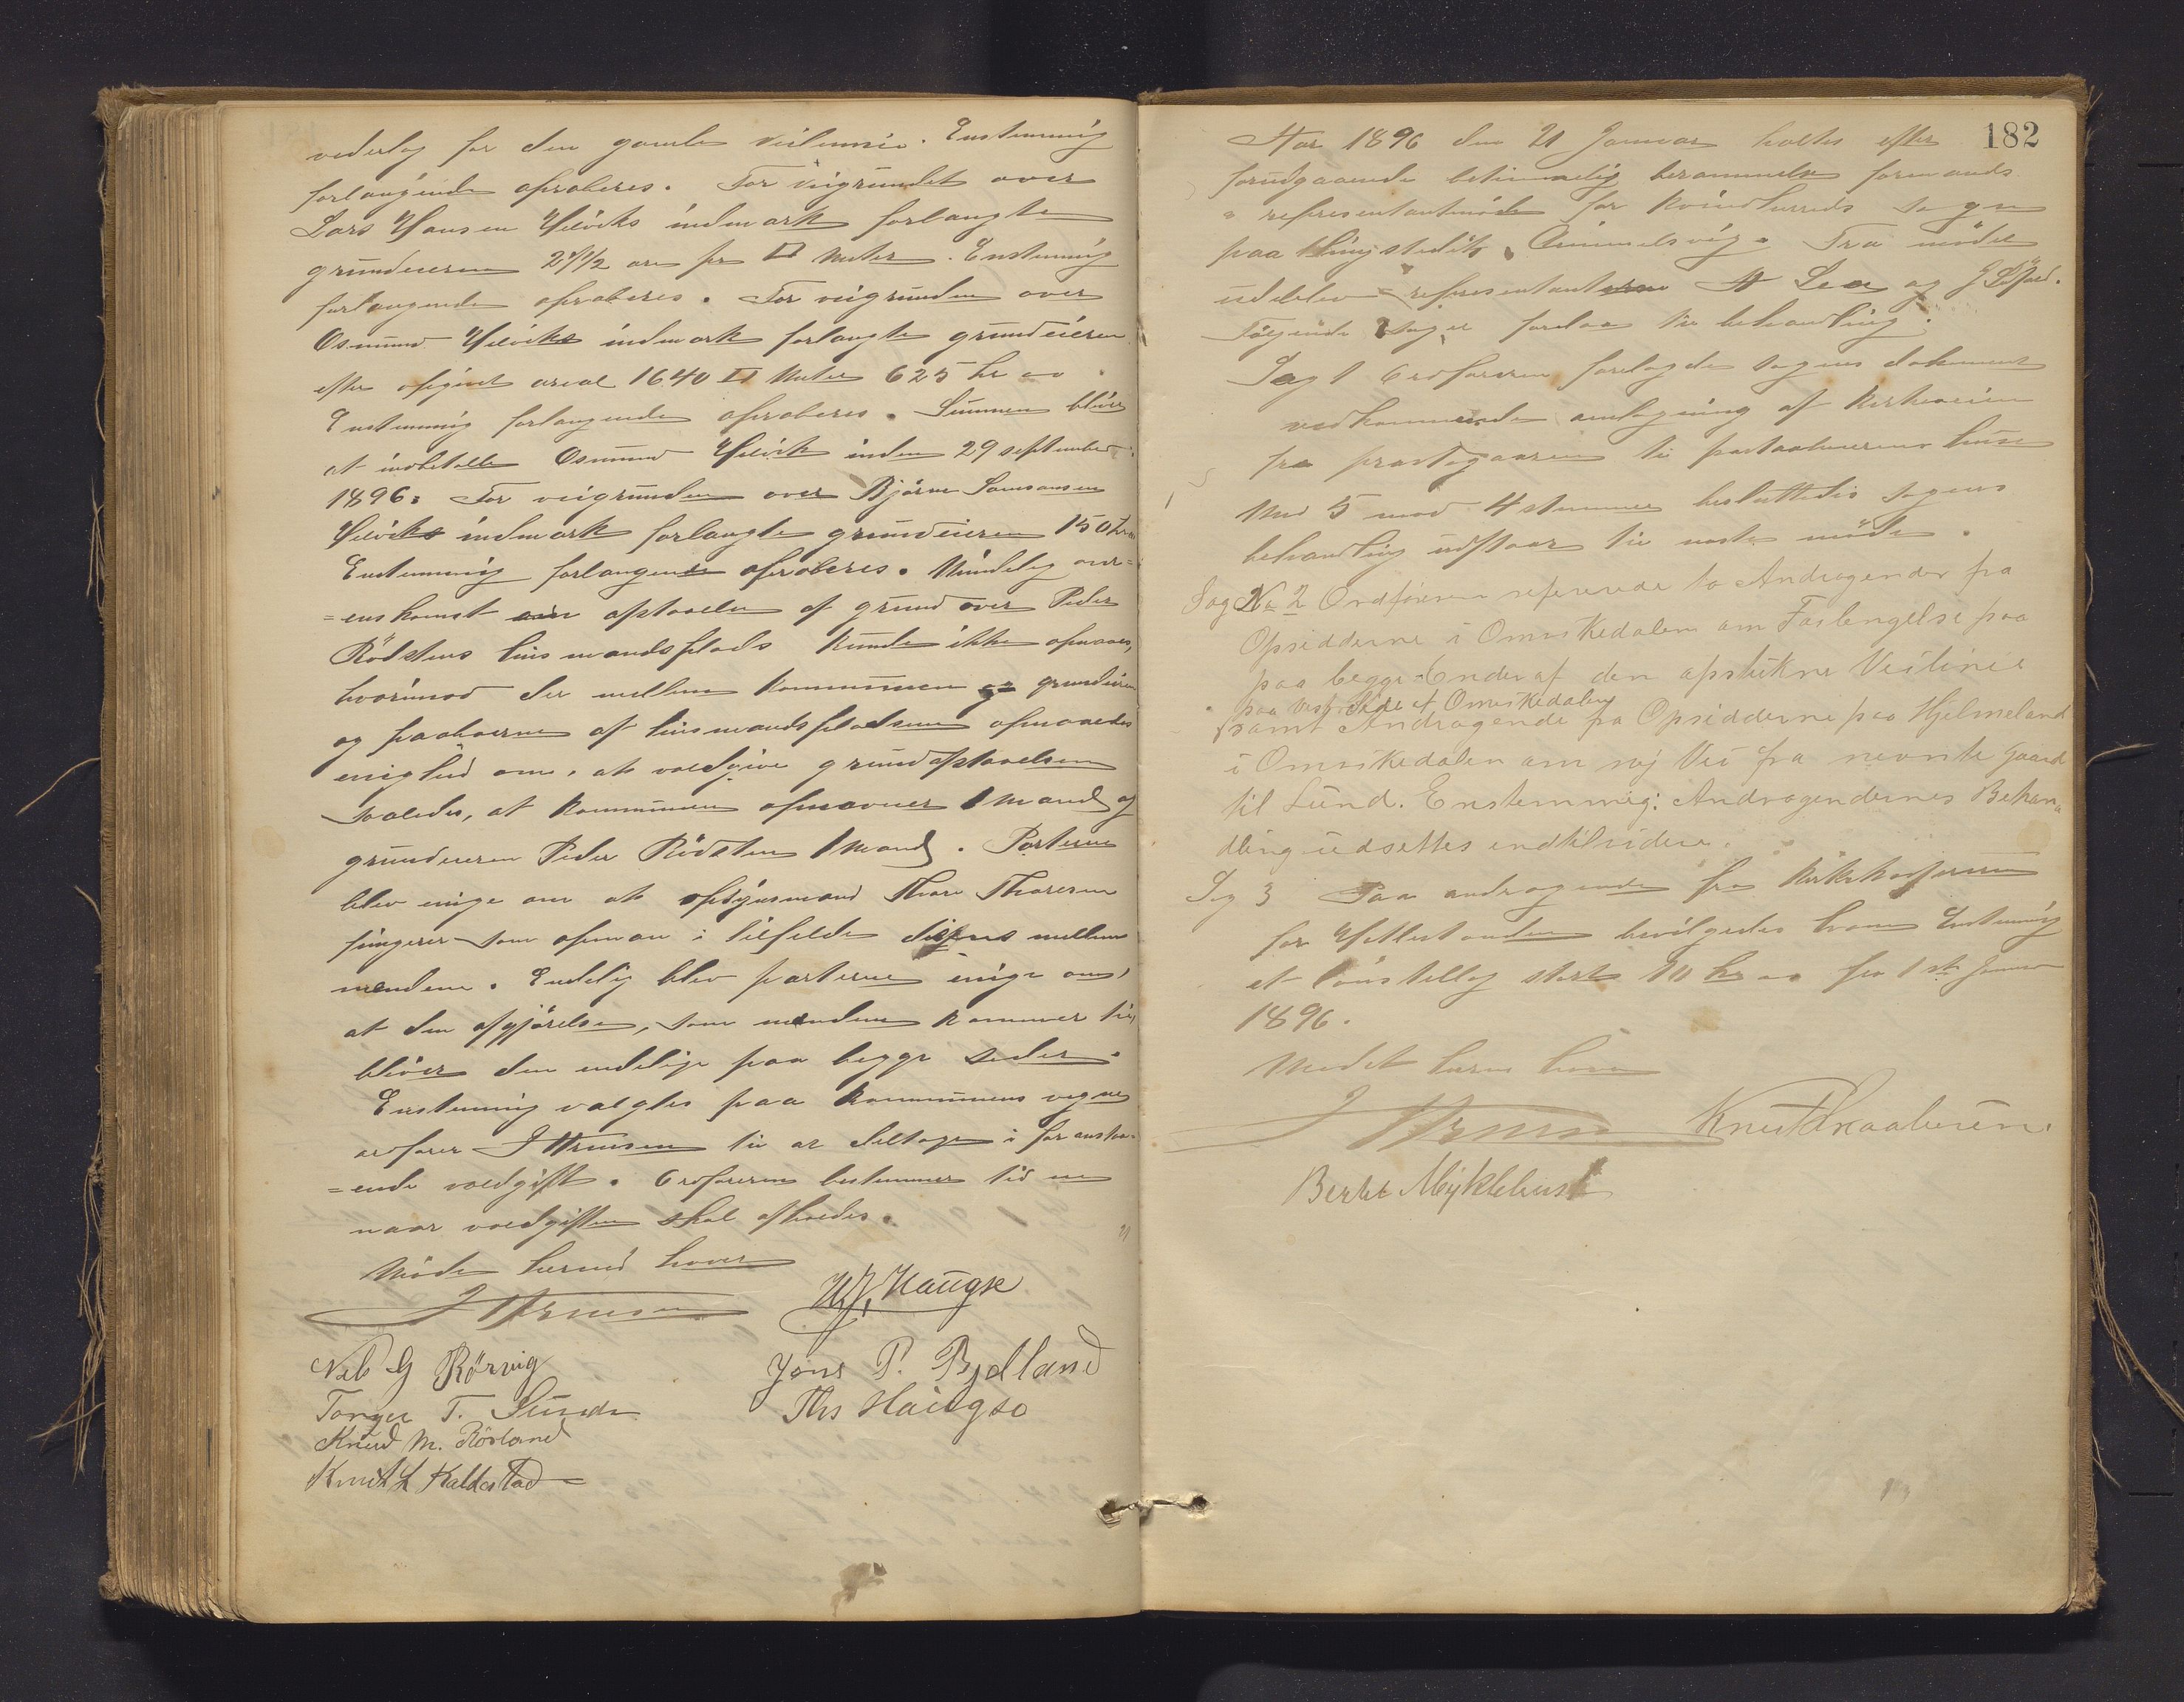 vederlag for den gamle veilinnie. Enstemmig
forlangende aproberes. For veigrundet over
Lars Hansen Helviks indmark forlangte
grundeieren 27 1/2 øre pr □ Meter. Enstemmig
forlangende aproberes. For veigrunden over
Osmund Helviks indmark forlangte grundeieren
efter opgivet areal 1640 □ Meter 625 kr
Enstemmig forlangende aproberes. Summen bliver
at indbetalle Osmund Helvik inden 29 september
1896. For veigrunden over Bjørne Samsonsen
Helviks indmark forlangte grundeieren 150 kr
Enstemmig forlangende aproberes. Mindelig over=
=enskomst om afstaaelse af grund over Peder
Rødstens husmandsplads kunde ikke opnaaes,
hvorimod der mellem kommunen og grundeieren
og paaboerne af husmandspladsen opnaaedes
enighed om, at voldgive grundafstaaelsen
saaledes, at kommunen opnævner 1 Mand og
grundeieren Peder Rødsten 1 Mand. Parterne
blev enige om at opsynsmand Thore Thoresen
fungerer som opman i tilfelde mellem
mændene. Endelig blev parterne enige om,
at den afgjørelse, som mændene kommer til,
bliver den endelige paa begge sider.
Enstemmig valgtes paa kommunens vegne
ordfører til at deltage i foranstaa=
=ende voldgift. Ordføreren bestemmer tid
naar voldgiften skal afholdes.
Møde hermed hævet
H. J. Haugse
Nils G Rørvig Jons P. Bjelland
Torger T. Sunde Ths Haugse
Knud M. Røsland
Knut L Kaldestad
182
Aar 1896 den 21 Januar holtes efter
forudgaaende betimmelig berammelse formands
= representantmøde for Kvindherreds sogn
paa thingstedet Ømmelsvig. Fra mødet
udeblev representanterne A Lea og
Følgende Sager forelaa til behandling:
Sag 1 Ordføreren forelagde sagens dokument
vedkommende omlægning af kirkeveien
fra prestegaarden til postaabnerens huse
Med 5 mod 4 stemmer besluttedes sagens
behandling udstaar til næste møde.
Sag No 2 Ordføreren refererede to Andragender fra
Opsidderne i Omvikedalen om Forlengelse paa
paa begge Ender af den afstukne Veilinie
paa Vestre Side af Omvikedalen
samt Andragende fra Opsidderne paa Hjelmeland
i Omvikedalen om nÿ Vei fra nevnte Gaard
til Lund. Enstemmig: Andragendernes Behan=
dling udsettes indtilvidere.
Sag 3 Paa andragende fra
for bevilgedes ham Enstemmig
et lønstillæg stort 10 kr fra 1ste Januar
1896.
Mødet hermed hævet
Knut Skaaluren.
Bertel Myklebust